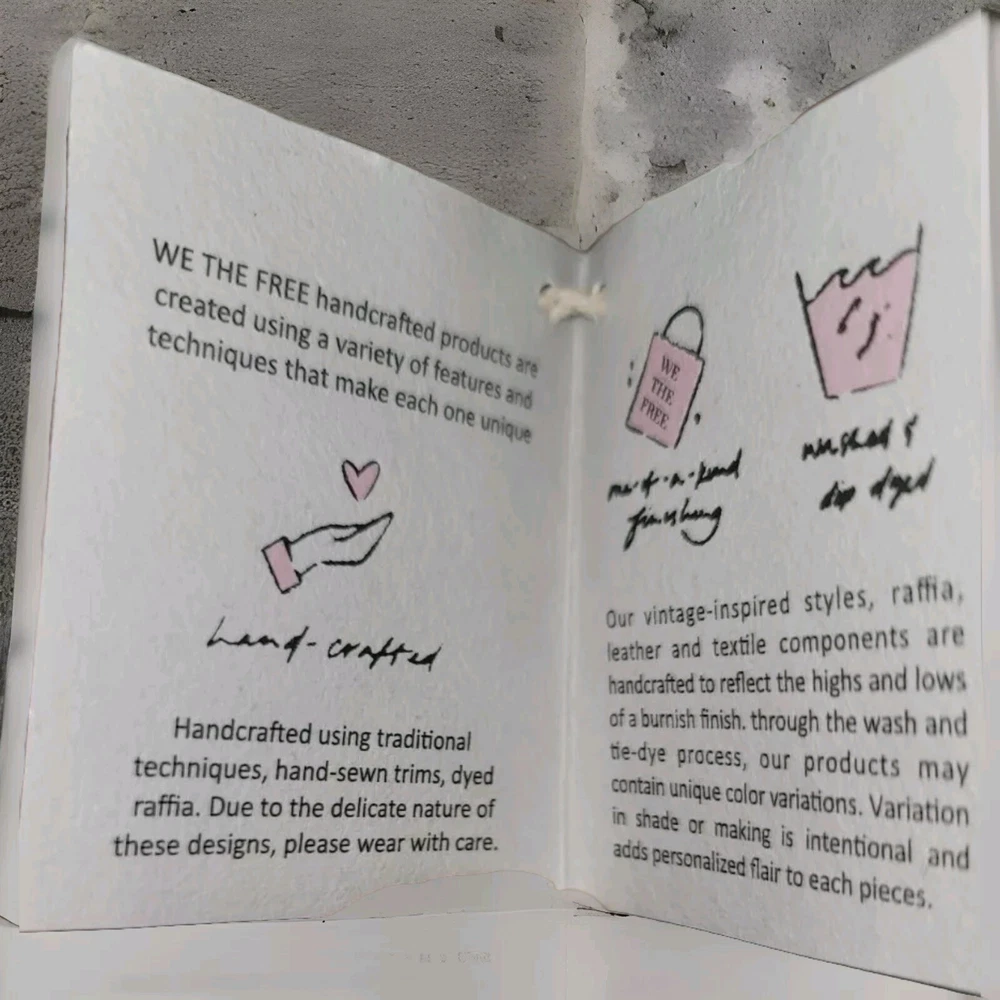 WE THE FREE handcrafted products are
created using a variety of features and
techniques that make each one unique
hand-crafted
Handcrafted using traditional
techniques, hand-sewn trims, dyed
raffia. Due to the delicate nature of
these designs, please wear with care.
WE
THE
FREE
finishing
washed &
dip dyed
Our vintage-inspired styles, raffia,
leather and textile components are
handcrafted to reflect the highs and lows
of a burnish finish. through the wash and
tie-dye process, our products may
contain unique color variations. Variation
in shade or making is intentional and
adds personalized flair to each pieces.